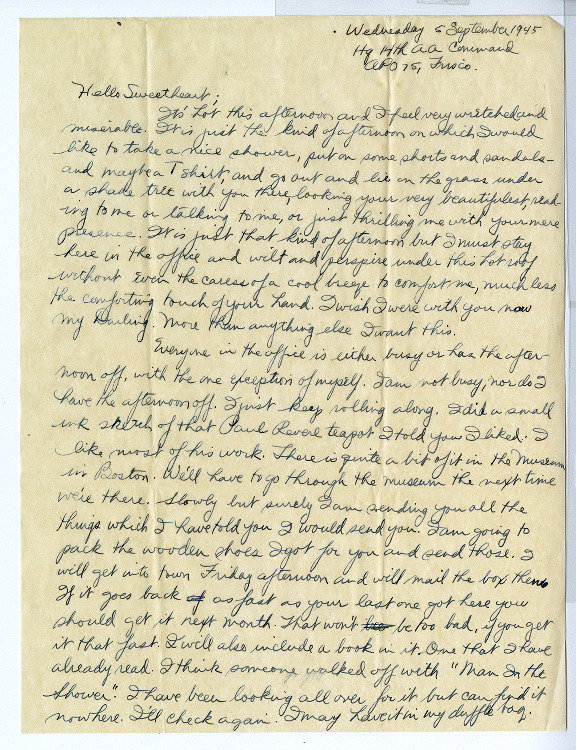 Wednesday 5 September 1945
Hq 14th AA Command
APO 75, Frisco.
Hello Sweetheart;
It's hot this afternoon and I feel very wretched and
miserable. It is just the kind of afternoon on which I would
like to take a nice shower, put on some shorts and sandals-
and maybe a T shirt, and go out and lie in the grass under
a shade tree with you there, looking your very beautifulest, read
ing to me or talking to me, or just thrilling me with your mere
presence. It is just that kind of afternoon but I must stay
here in the office and wilt and perspire under this hot roof
without even the caress of a cool breeze to comfort me, much less
the comforting touch of your hand. I wish I were with you now
my Darling. More than anything else I want this.
Everyone in the office is either busy or has the after-
noon off, with the one exception of myself. I am not busy, nor do I
have the afternoon off. I just keep rolling along. I did a small
ink sketch of that Paul Revere teapot I told you I liked. I
like most of his work. There is quite a bit of it in the Museum
in Boston. We'll have to go through the museum the next time
we're there. Slowly but surely I am sending you all the
things which I have told you I would send you. I am going to
pack the wooden shoes I got for you and send those. I
will get into town Friday afternoon and will mail the box then.
If it goes back as fast as your last one got here you
should get it next month. That won't be too bad, if you get
it that fast. I will also include a book in it. One that I have
already read. I think someone walked off with "Man In the
Shower". I have been looking all over for it but can find it
nowhere. I'll check again. I may have it in my duffle bag.